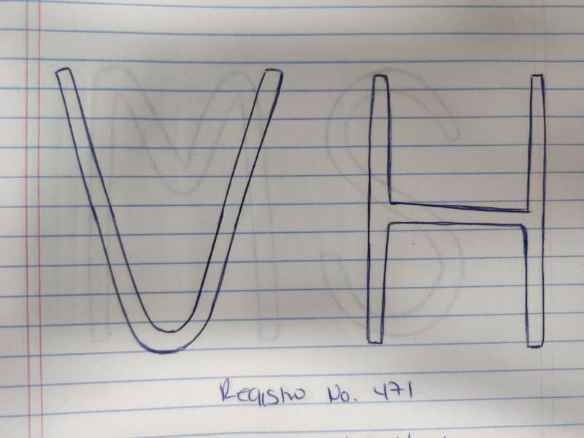 V H
Registro No. 471